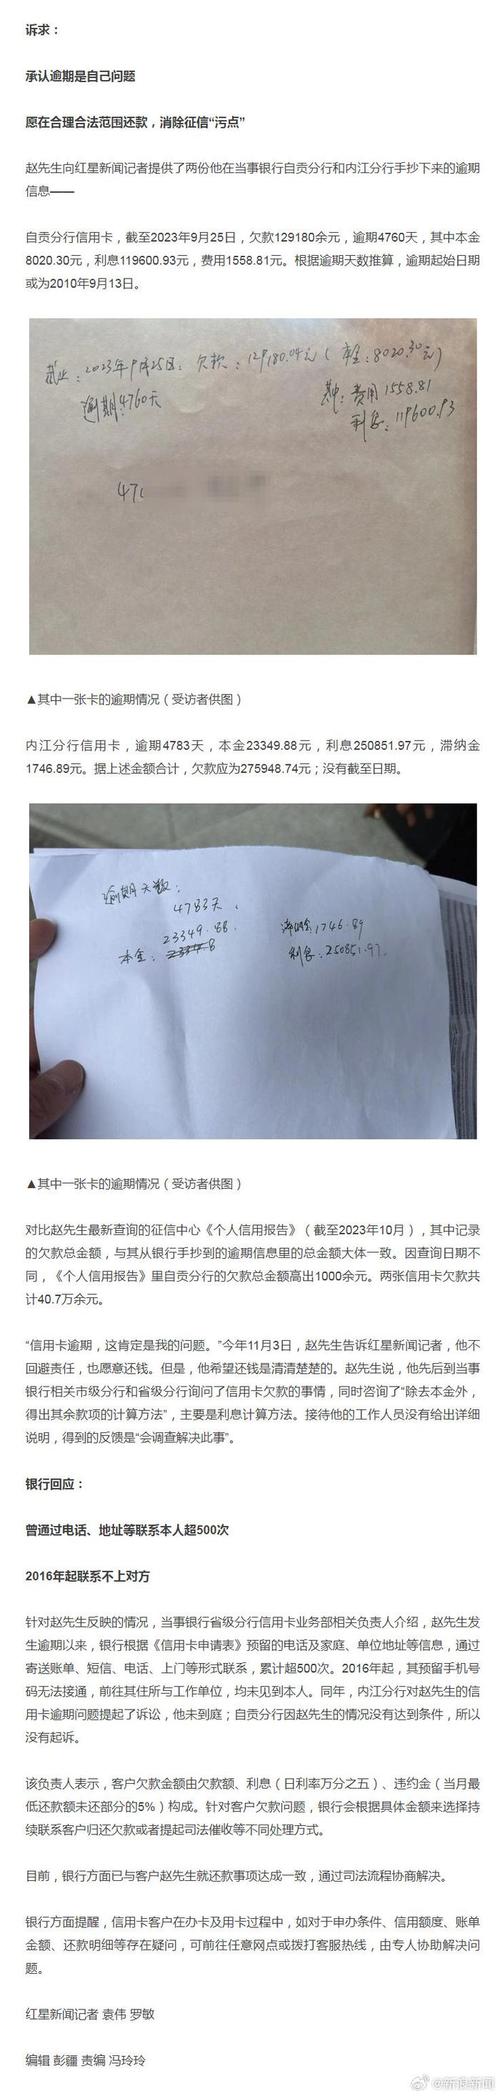 诉求：
承认逾期是自己问题
愿在合理合法范围还款，消除征信“污点”
赵先生向红星新闻记者提供了两份他在当事银行自贡分行和内江分行手抄下来的逾期
信息——
自贡分行信用卡，截至2023年9月25日，欠款129180余元，逾期4760天，其中本金
8020.30元，利息119600.93元，费用1558.81元。根据逾期天数推算，逾期起始日期
或为2010年9月13日。
截止：2023年9月25日：欠款：129180.04元（本金：8020.30元）
逾期4760天
其中：费用1558.81
利息：119600.93
47
▲其中一张卡的逾期情况（受访者供图）
内江分行信用卡，逾期4783天，本金23349.88元，利息250851.97元，滞纳金
1746.89元。据上述金额合计，欠款应为275948.74元；没有截至日期。
逾期天数：
4783天.
23349.88.
本金：
滞纳金：1746.89
利息：250851.97.
▲其中一张卡的逾期情况（受访者供图）
对比赵先生最新查询的征信中心《个人信用报告》（截至2023年10月），其中记录
的欠款总金额，与其从银行手抄到的逾期信息里的总金额大体一致。因查询日期不
同，《个人信用报告》里自贡分行的欠款总金额高出1000余元。两张信用卡欠款共
计40.7万余元。
“信用卡逾期，这肯定是我的问题。”今年11月3日，赵先生告诉红星新闻记者，他不
回避责任，也愿意还钱。但是，他希望还钱是清清楚楚的。赵先生说，他先后到当事
银行相关市级分行和省级分行询问了信用卡欠款的事情，同时咨询了“除去本金外，
得出其余款项的计算方法”，主要是利息计算方法。接待他的工作人员没有给出详细
说明，得到的反馈是“会调查解决此事”。
银行回应：
曾通过电话、地址等联系本人超500次
2016年起联系不上对方
针对赵先生反映的情况，当事银行省级分行信用卡业务部相关负责人介绍，赵先生发
生逾期以来，银行根据《信用卡申请表》预留的电话及家庭、单位地址等信息，通过
寄送账单、短信、电话、上门等形式联系，累计超500次。2016年起，其预留手机号
码无法接通，前往其住所与工作单位，均未见到本人。同年，内江分行对赵先生的信
用卡逾期问题提起了诉讼，他未到庭；自贡分行因赵先生的情况没有达到条件，所以
没有起诉。
该负责人表示，客户欠款金额由欠款额、利息（日利率万分之五）、违约金（当月最
低还款额未还部分的5%）构成。针对客户欠款问题，银行会根据具体金额来选择持
续联系客户归还欠款或者提起司法催收等不同处理方式。
目前，银行方面已与客户赵先生就还款事项达成一致，通过司法流程协商解决。
银行方面提醒，信用卡客户在办卡及用卡过程中，如对于申办条件、信用额度、账单
金额、还款明细等存在疑问，可前往任意网点或拨打客服热线，由专人协助解决问
题。
红星新闻记者 袁伟 罗敏
编辑 彭疆 责编 冯玲玲
@新浪新闻